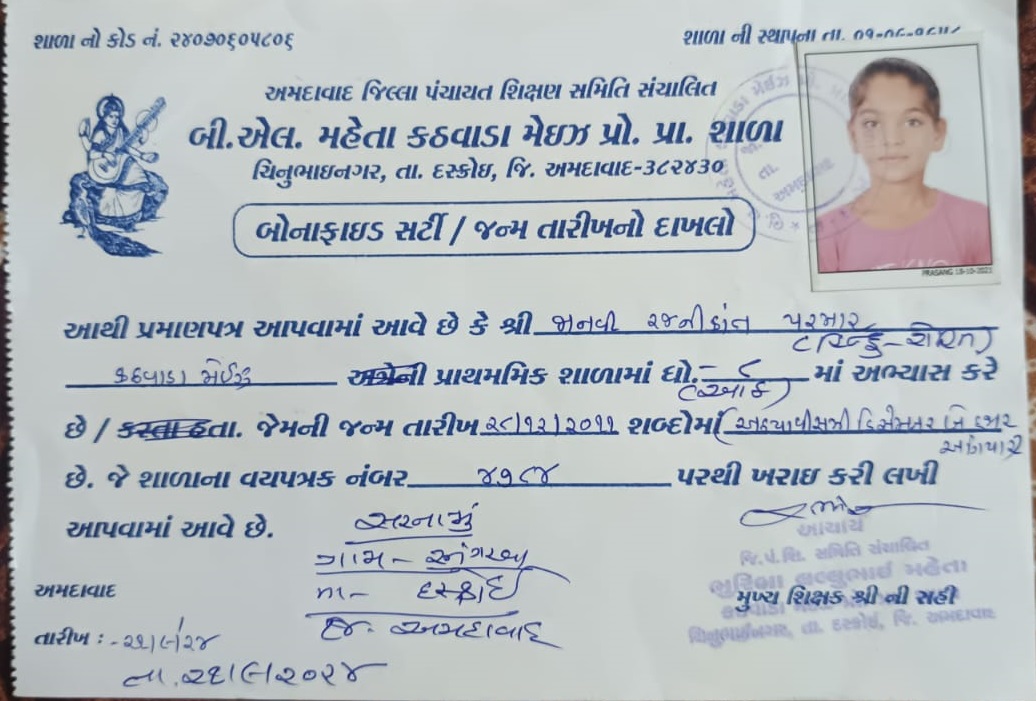 શાળા નો કોડ નં. ૨૪૦૭૦૬૦૫૮૦૬
શાળા ની સ્થાપના તા.
અમદાવાદ જિલ્લા પંચાયત શિક્ષણ સમિતિ સંચાલિત
બી.એલ. મહેતા કઠવાડા મેઇઝ પ્રો. પ્રા. શાળા
ચિનુભાઇનગર, તા. દસ્કોઇ, જિ. અમદાવાદ-૩૮૨૪૩૦
બોનાફાઇડ સર્ટી / જન્મ તારીખનો દાખલો
PRASANG 15-10-2021
આથી પ્રમાણપત્ર આપવામાં આવે છે કે શ્રી જાનવી રજનીકાંત પરમાર
(હિન્દુ-રોહિત)
કઠવાડા મેઈઝ અત્રેની પ્રાથમમિક શાળામાં ધો.- ૮ માં અભ્યાસ કરે
(આઠ)
છે / કરતા હતા. જેમની જન્મ તારીખ ૨૮/૧૨/૨૦૧૧ શબ્દોમાં (અઠયાવીસમી ડિસેમ્બર બે હજાર
અગિયાર)
છે. જે શાળાના વયપત્રક નંબર ૪૭૮૪ પરથી ખરાઇ કરી લખી
આપવામાં આવે છે.
સરનામું
ગામ-
તા- દસ્ક્રોઈ
જી. અમદાવાદ
આચાર્ય
જિ.પં.શિ. સમિતિ સંચાલિત
ભુરિબા લલ્લુભાઈ મહેતા
મુખ્ય શિક્ષક શ્રી ની સહી
ચિનુભાઈનગર, તા. દસ્કોઈ, જિ. અમદાવાદ
અમદાવાદ
તારીખ :- ૨૬/૯/૨૪
તા. ૨૬/૯/૨૦૨૪